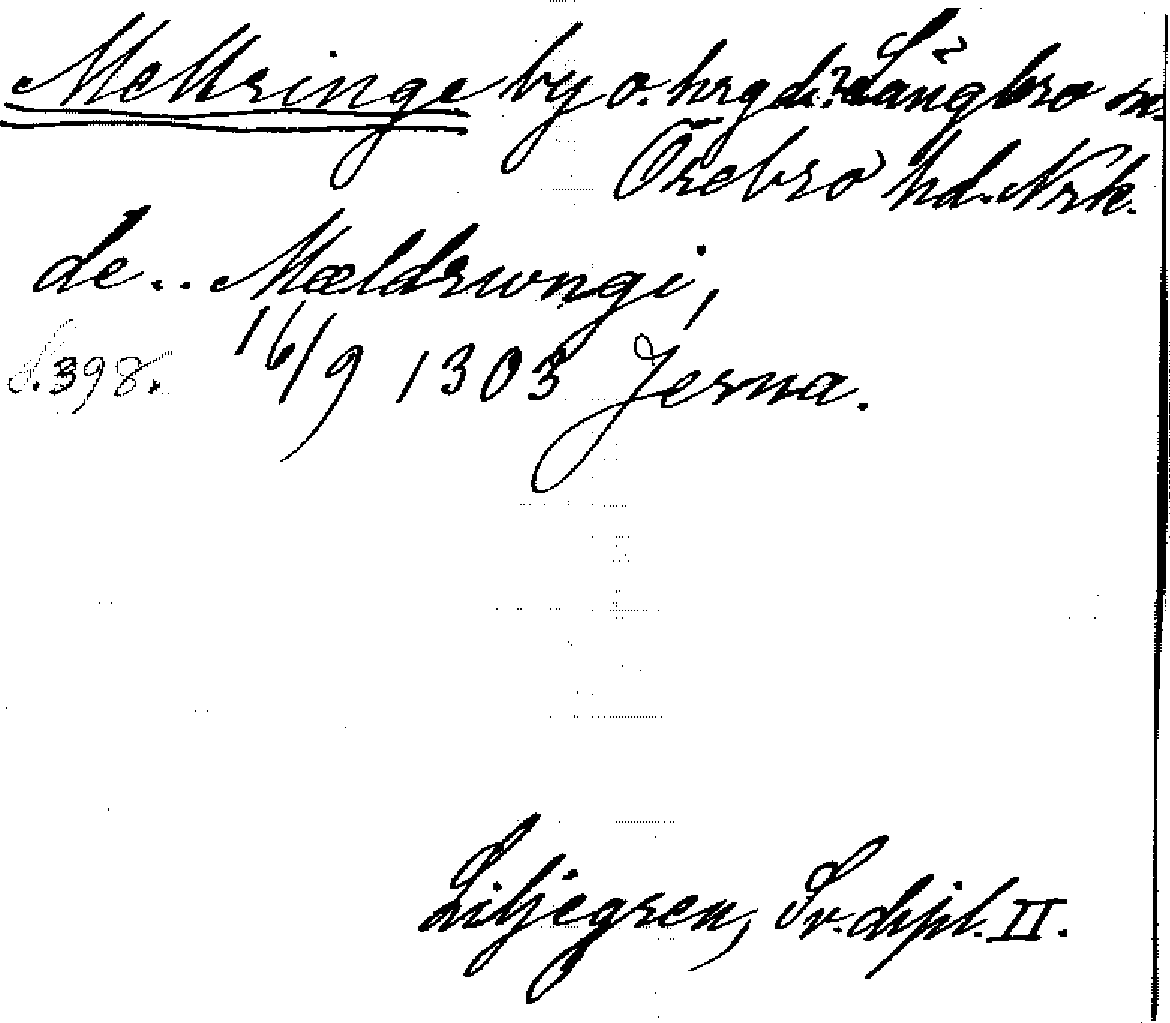 Mellringe by o. hrgd i Längbro sn.
Örebro hd. Nrk.
de .. Mældrwngi,
S. 398. 16/9 1303 Jerna.
Liljegren, Sv. dipl. II.